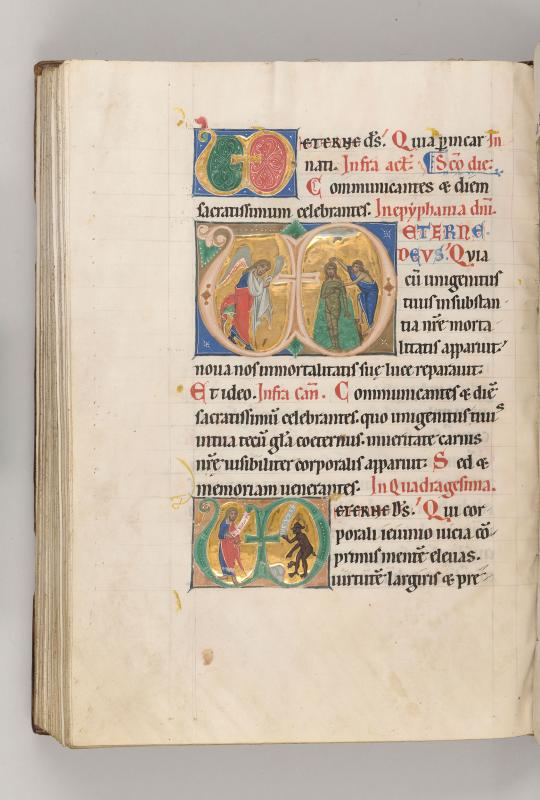 ETERNE d̄s. Quia ꝑ incar In
nati. Infra act̄. Sc̄o die.
Communicantes & diem
sacratissimum celebrantes. In epyphania dn̄i.
ETERNE
DEVS. Quia
cū unigenitus
tuus in substan
tia nr̄e morta
litatis apparuit.
noua nos immortalitatis suę luce reparauit.
Et ideo. Infra can̄. Communicantes & diē
sacratissimū celebrantes. quo unigenitus tuus
in tua tecū gl̄a coeternus. in ueritate carnis
nr̄e uisibiliter corporalis apparuit. Sed &
memoriam uenerantes. In Quadragesima.
ETERNE Ds̄. Qui cor
porali ieiunio uicia cō
primis mentē eleuas.
uirtutē largiris & pre